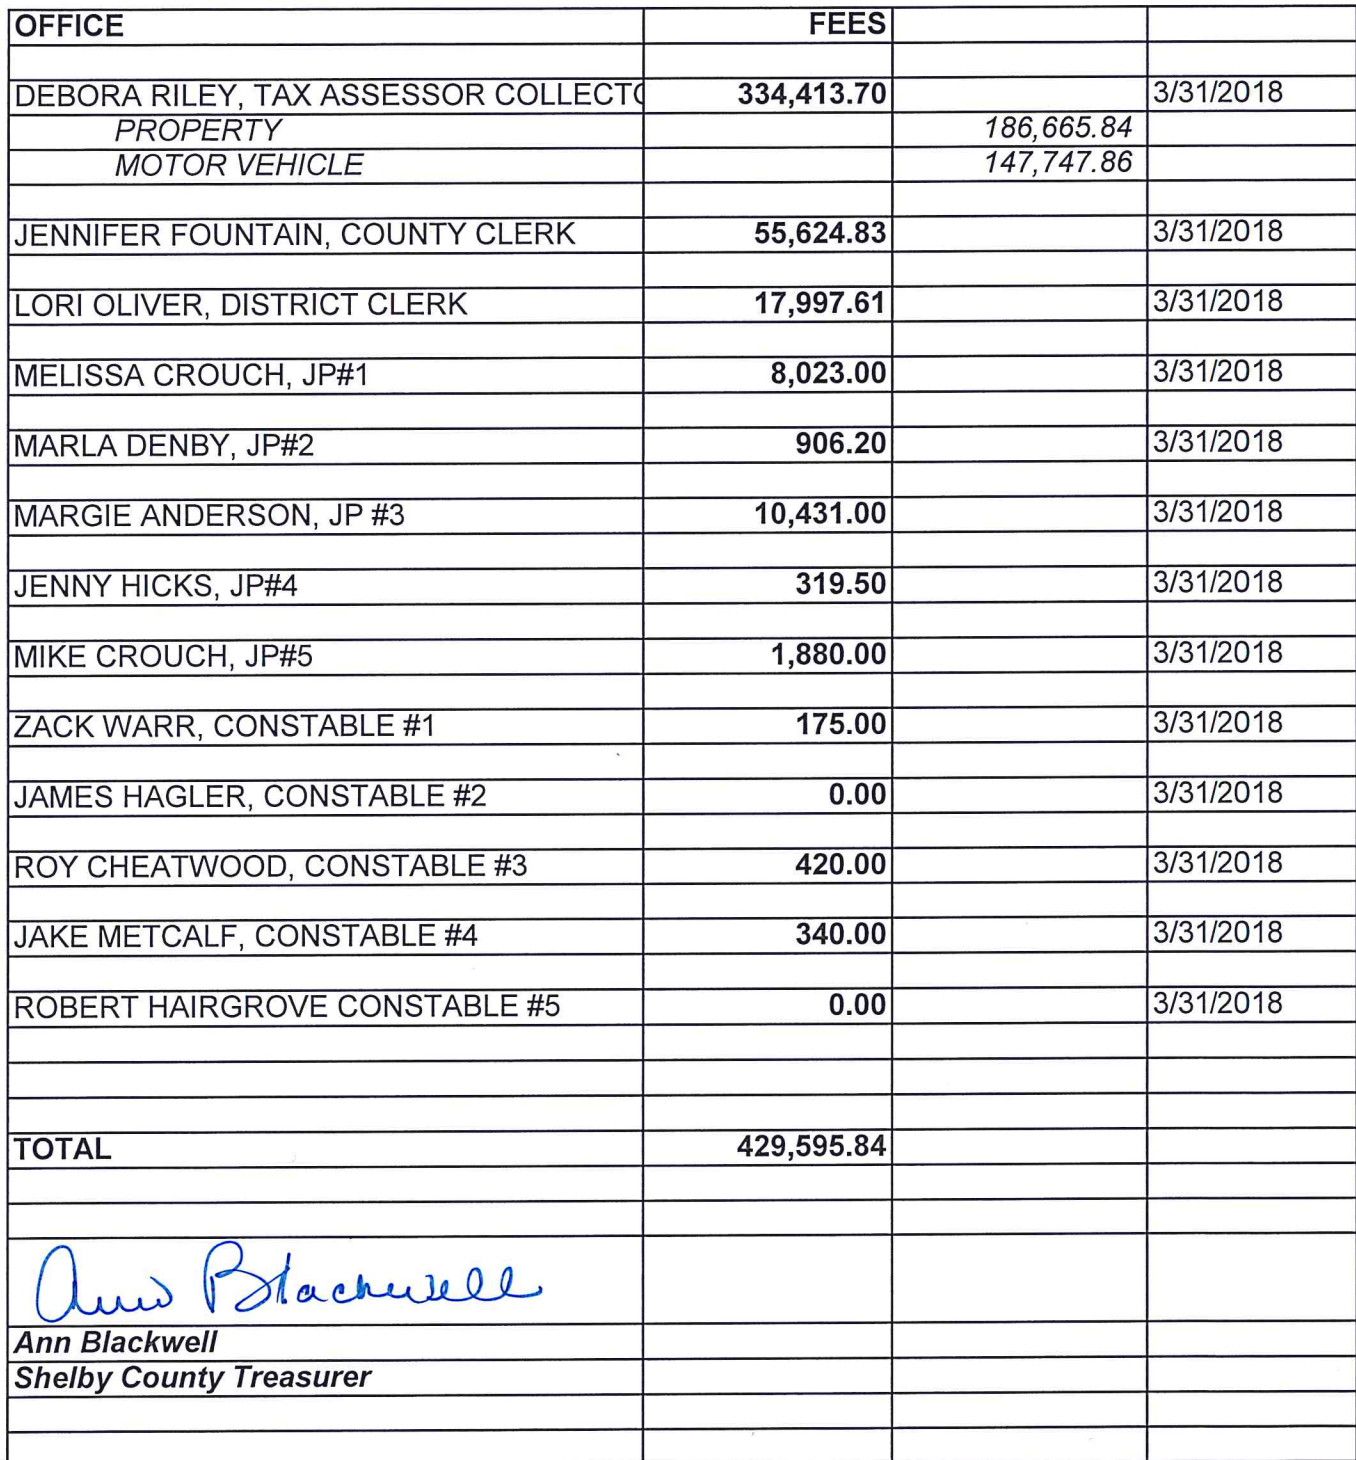 OFFICE FEES
DEBORA RILEY, TAX ASSESSOR COLLECTO 334,413.70 3/31/2018
PROPERTY 186,665.84
MOTOR VEHICLE 147,747.86
JENNIFER FOUNTAIN, COUNTY CLERK 55,624.83 3/31/2018
LORI OLIVER, DISTRICT CLERK 17,997.61 3/31/2018
MELISSA CROUCH, JP#1 8,023.00 3/31/2018
MARLA DENBY, JP#2 906.20 3/31/2018
MARGIE ANDERSON, JP #3 10,431.00 3/31/2018
JENNY HICKS, JP#4 319.50 3/31/2018
MIKE CROUCH, JP#5 1,880.00 3/31/2018
ZACK WARR, CONSTABLE #1 175.00 3/31/2018
JAMES HAGLER, CONSTABLE #2 0.00 3/31/2018
ROY CHEATWOOD, CONSTABLE #3 420.00 3/31/2018
JAKE METCALF, CONSTABLE #4 340.00 3/31/2018
ROBERT HAIRGROVE CONSTABLE #5 0.00 3/31/2018
TOTAL 429,595.84
Ann Blackwell
Ann Blackwell
Shelby County Treasurer